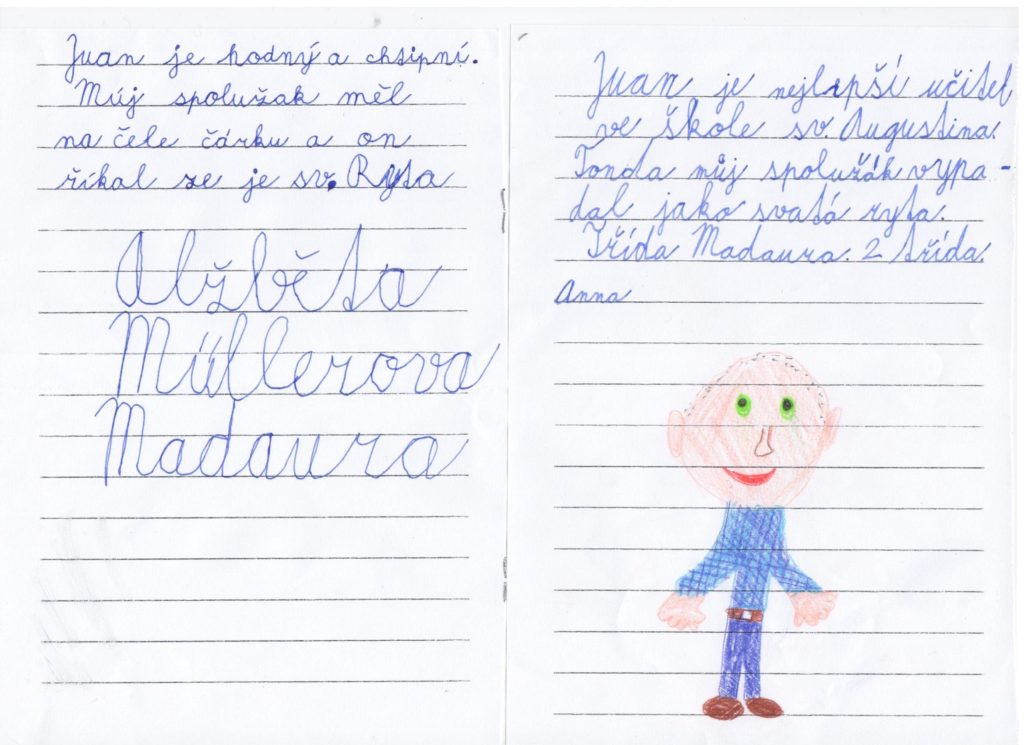 Juan je hodný a chtipní.
Můj spolužak měl
na čele čárku a on
říkal ze je sv. Ryta
Alžběta
Müllerova
Madaura
Juan je nejlepší učitel
ve škole sv. Augustina.
Tonda můj spolužák vypa-
dal jako svatá ryta.
Třída Madaura. 2 třída.
Anna